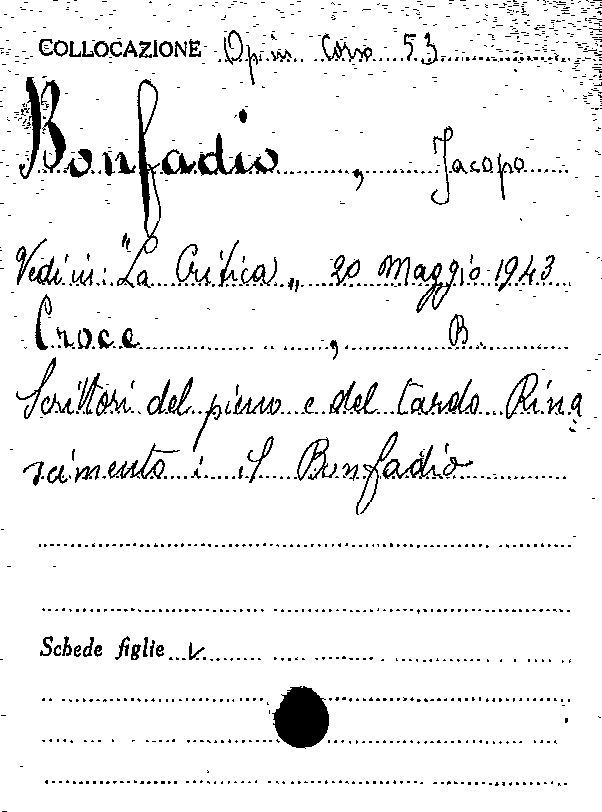 COLLOCAZIONE Op. in Corso 53
Bonfadio, Jacopo
Vedi in: "La Critica„ 20 Maggio 1943
Croce, B.
Scrittori del pieno e del tardo Rina
scimento: il Bonfadio
Schede figlie V